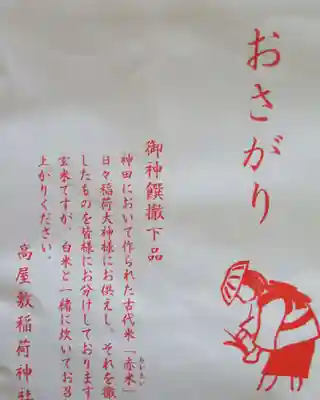 おさがり
御神饌撤下品
神田において作られた古代米「赤米」
日々稲荷大神様にお供えし、それを撤
したものを皆様にお分けしております
玄米ですが、白米と一緒に炊いてお召
上かりください。
高屋敷稲荷神社